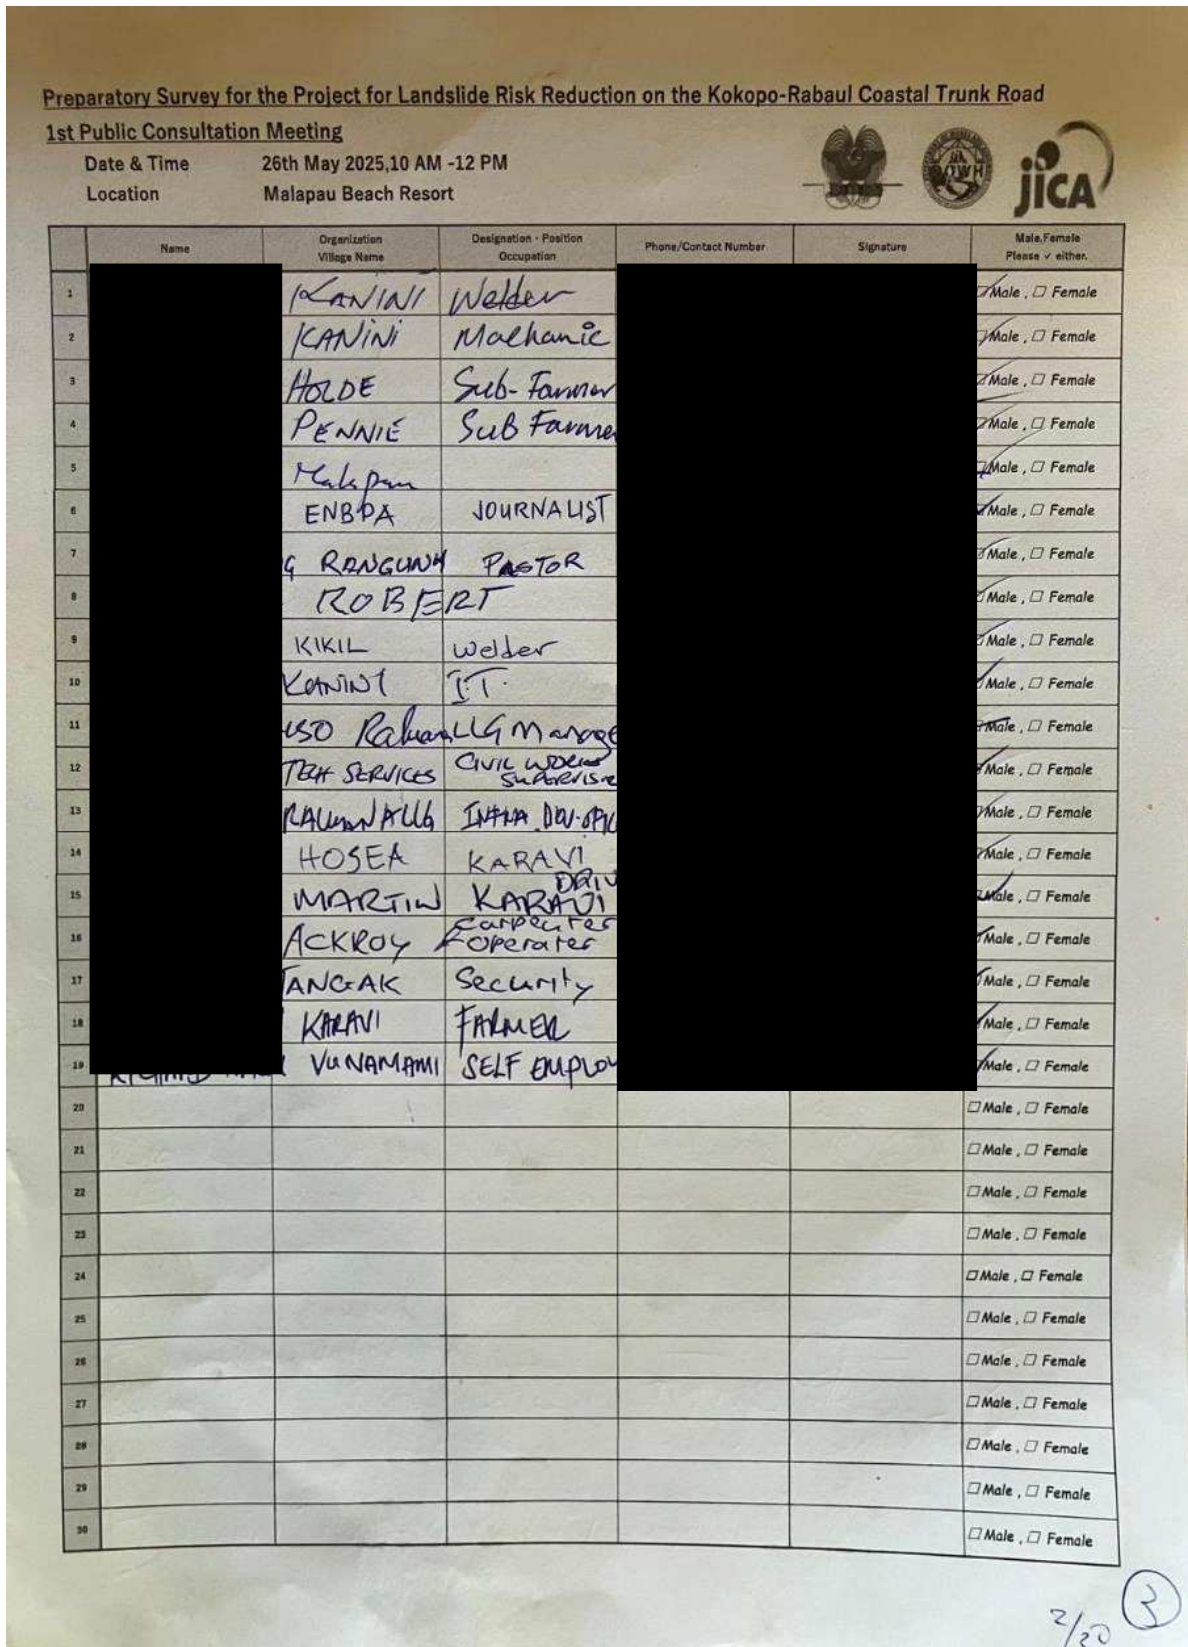 Preparatory Survey for the Project for Landslide Risk Reduction on the Kokopo-Rabaul Coastal Trunk Road
1st Public Consultation Meeting
Date & Time 26th May 2025,10 AM -12 PM
Location Malapau Beach Resort
jICA
Name Organization Village Name Designation・Position Occupation Phone/Contact Number Signature Male,Female Please ✓ either.
1 KANINI Welder Male , Female
2 KANINI Machanic Male , Female
3 HOLDE Sub-Farmer Male , Female
4 PENNIE Sub Farme Male , Female
5 Malapau Male , Female
6 ENBPA JOURNALIST Male , Female
7 RANGUNA PASTOR Male , Female
8 ROBERT Male , Female
9 KIKIL Welder Male , Female
10 KANINI I.T. Male , Female
11 LLG Manage Male , Female
12 TECH SERVICES CIVIL WORKS SUPERVISO Male , Female
13 Male , Female
14 HOSEA KARAVI Male , Female
15 MARTIN KARAVI DRIV Male , Female
16 ACKROY Carpenter Operater Male , Female
17 TANGAK Security Male , Female
18 KARAVI FARMER Male , Female
19 VUNAMAMI SELF EMPLOY Male , Female
20 Male , Female
21 Male , Female
22 Male , Female
23 Male , Female
24 Male , Female
25 Male , Female
26 Male , Female
27 Male , Female
28 Male , Female
29 Male , Female
30 Male , Female
2/20 3